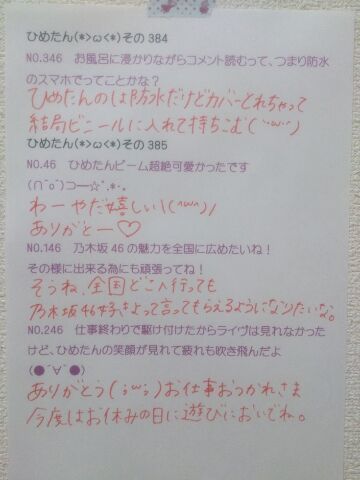 ひめたん(*>ω<*)その384
NO.346　お風呂に浸かりながらコメント読むって、つまり防水
のスマホでってことかな?
ひめたんのは防水だけどカバーとれちゃって
結局ビニールに入れて持ちこむ(´･ω･`)
ひめたん(*>ω<*)その385
NO.46　ひめたんビーム超絶可愛かったです
(∩˘o˘)⊃━☆ﾟ.*･｡
わーやだ嬉しい\(^ω^)/
ありがとー♡
NO.146　乃木坂46の魅力を全国に広めたいね!
その様に出来る為にも頑張ってね!
そうね、全国どこへ行っても
乃木坂46好きよって言ってもらえるようになりたいな。
NO.246　仕事終わりで駆け付けたからライヴは見れなかった
けど、ひめたんの笑顔が見れて疲れも吹き飛んだよ
(●´∀`●)
ありがとう(;ω;)お仕事おつかれさま
今度はお休みの日に遊びにおいでね。